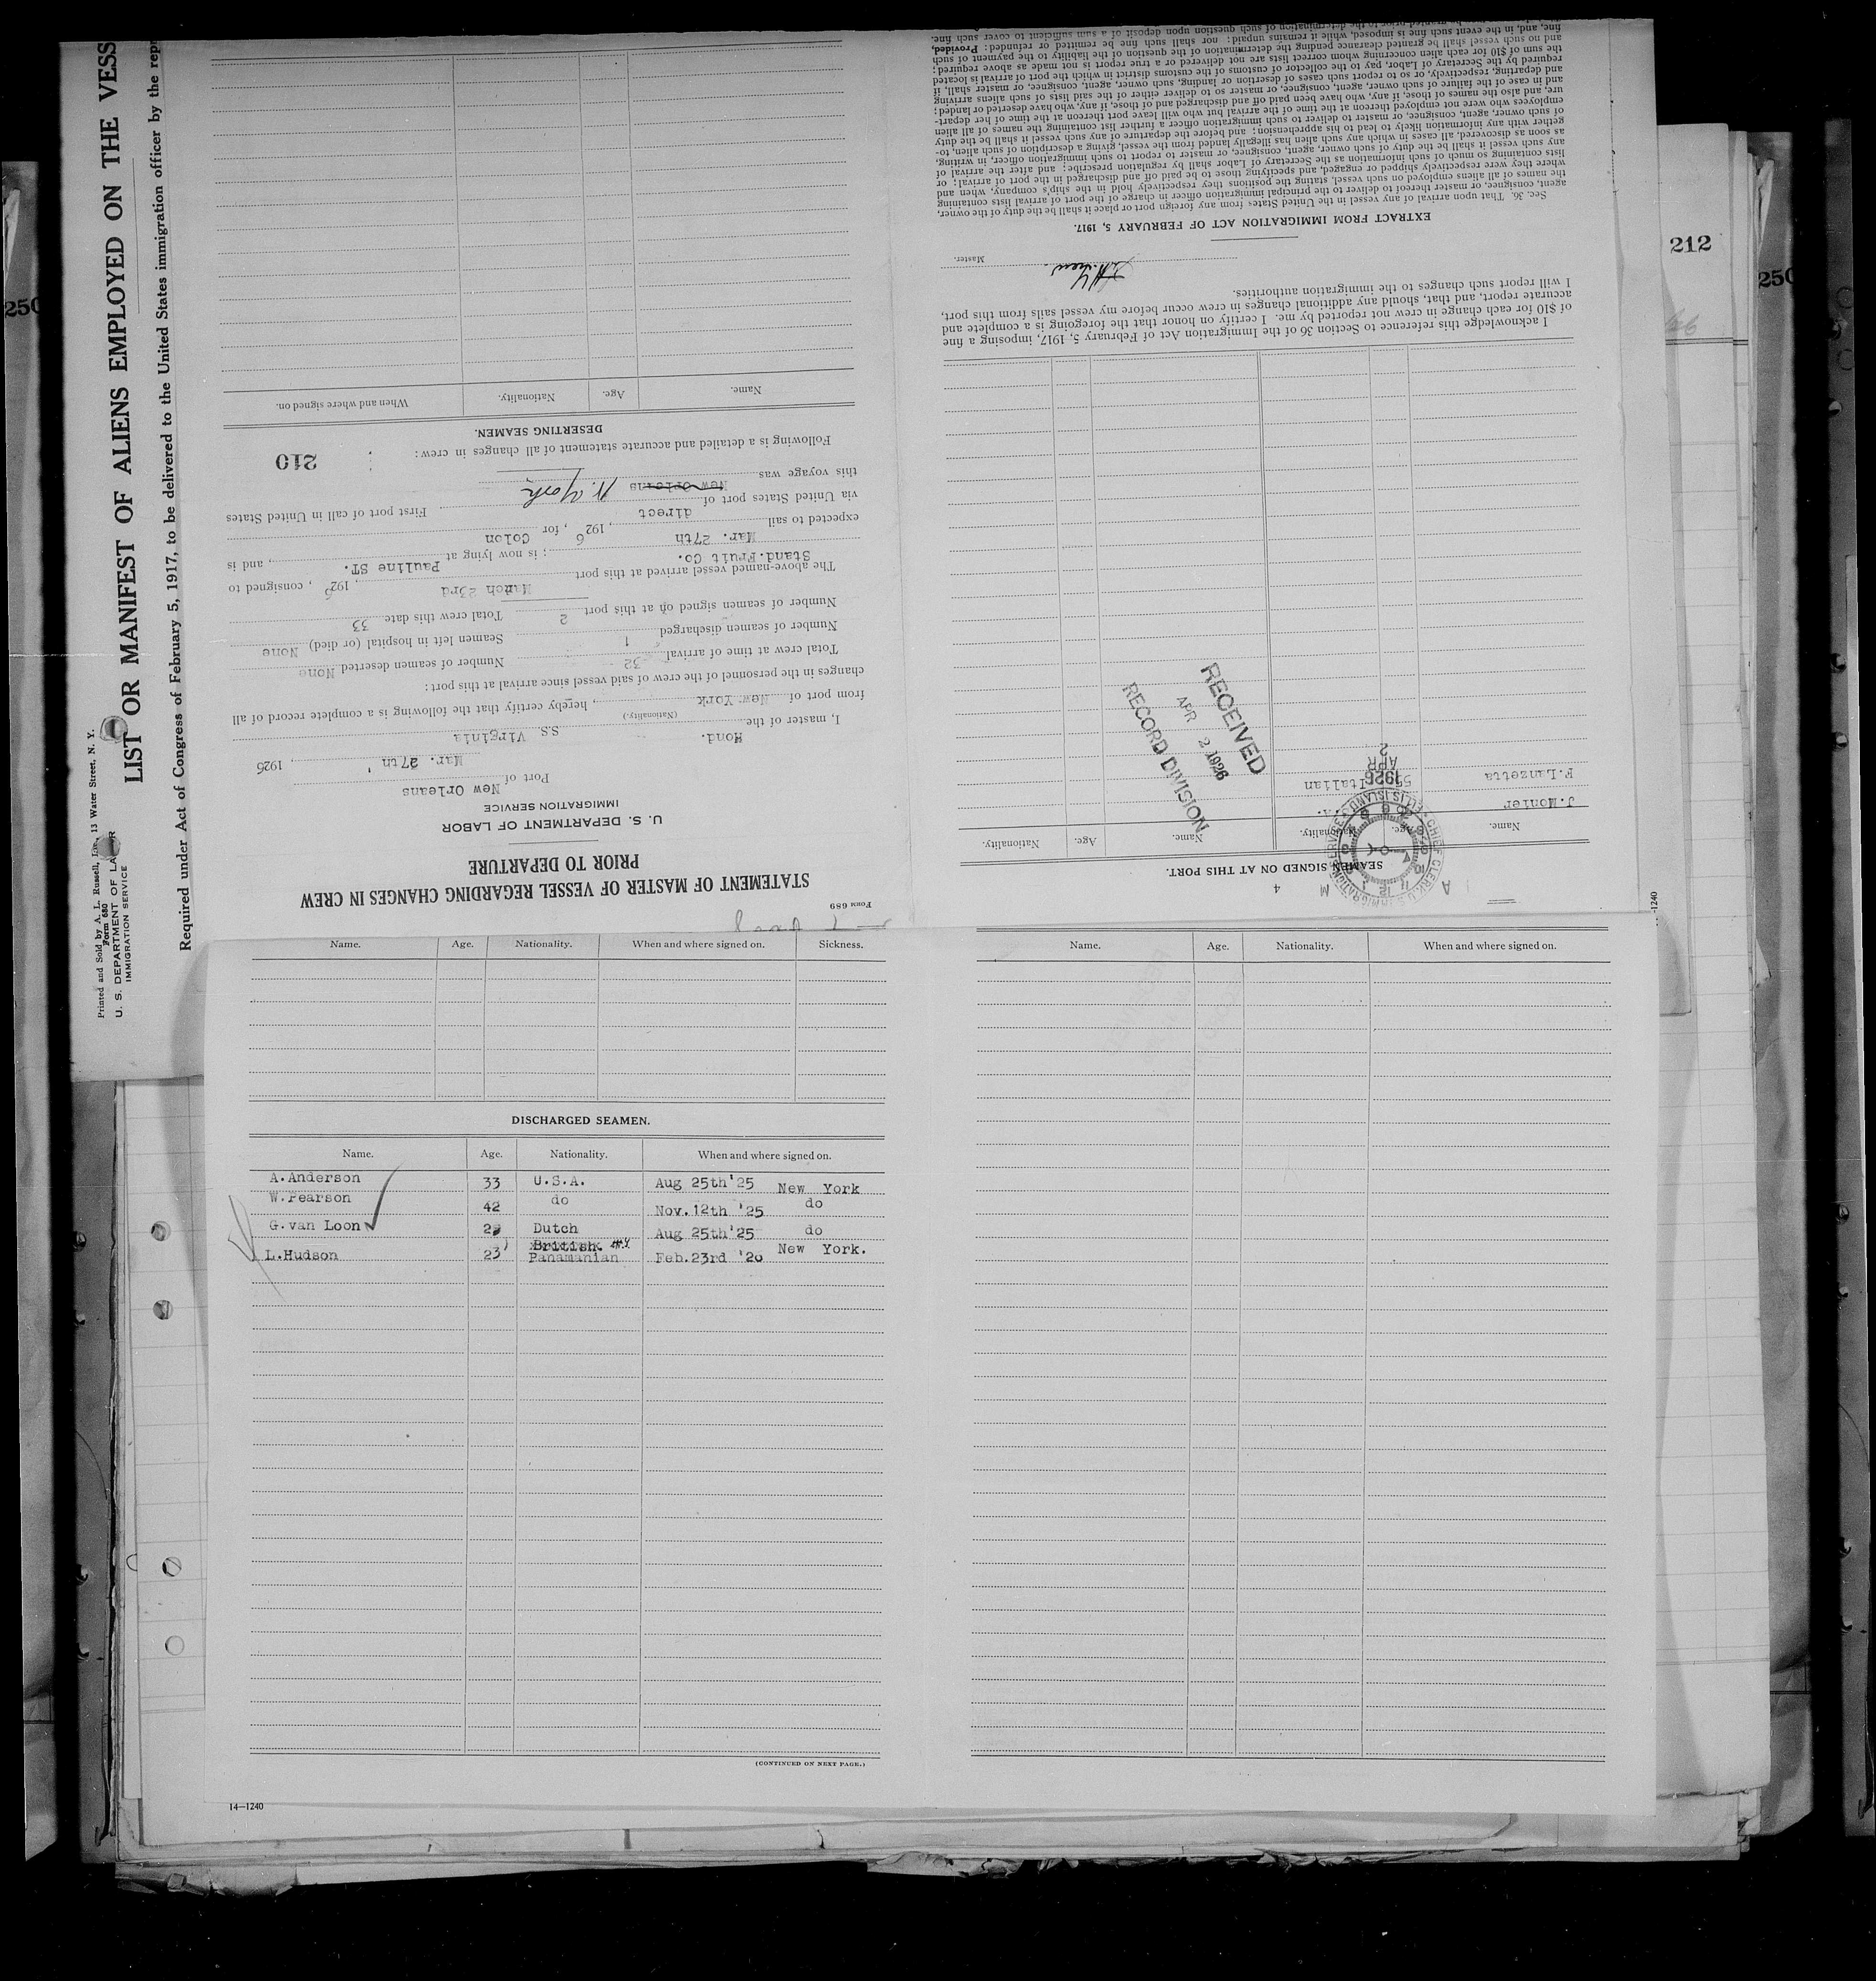 Printed and Sold by A. L. Russell, Inc., 13 Water Street, N. Y.
Form 680
U. S. DEPARTMENT OF LABOR
IMMIGRATION SERVICE
LIST OR MANIFEST OF ALIENS EMPLOYED ON THE VESS
Required under Act of Congress of February 5, 1917, to be delivered to the United States immigration officer by the repr
250
212
250
Form 689
STATEMENT OF MASTER OF VESSEL REGARDING CHANGES IN CREW
PRIOR TO DEPARTURE
U. S. DEPARTMENT OF LABOR
IMMIGRATION SERVICE
Port of New Orleans
Mar. 27th, 1926
I, master of the Hond. (Nationality.) S.S. Virginia
from port of New York, hereby certify that the following is a complete record of all
changes in the personnel of the crew of said vessel since arrival at this port:
Total crew at time of arrival 32 Number of seamen deserted None
Number of seamen discharged 1 Seamen left in hospital (or died) None
Number of seamen signed on at this port 2 Total crew this date 33
The above-named vessel arrived at this port March 23rd, 1926, consigned to
Stand.Fruit Co.; is now lying at Pauline ST., and is
expected to sail Mar. 27th, 1926, for Colon
via United States port of direct First port of call in United States
this voyage was New Orleans N. York
210
Following is a detailed and accurate statement of all changes in crew:
DESERTING SEAMEN.
Name. Age. Nationality. When and where signed on.
SEAMEN SIGNED ON AT THIS PORT.
Name. Age. Nationality. Name. Age. Nationality.
J.Monier
F.Lanzetta 55 Italian
RECEIVED
APR 2 1926
RECORD DIVISION
APR 2
1926
CHIEF CLERK U.S. IMMIGRATION SERVICE ELLIS ISLAND
A M
4
I acknowledge this reference to Section 36 of the Immigration Act of February 5, 1917, imposing a fine
of $10 for each change in crew not reported by me. I certify on honor that the foregoing is a complete and
accurate report, and that, should any additional changes in crew occur before my vessel sails from this port,
I will report such changes to the immigration authorities.
Master.
EXTRACT FROM IMMIGRATION ACT OF FEBRUARY 5, 1917.
Sec. 36. That upon arrival of any vessel in the United States from any foreign port or place it shall be the duty of the owner,
agent, consignee, or master thereof to deliver to the principal immigration officer in charge of the port of arrival lists containing
the names of all aliens employed on such vessel, stating the positions they respectively hold in the ship's company, when and
where they were respectively shipped or engaged, and specifying those to be paid off and discharged in the port of arrival; or
lists containing so much of such information as the Secretary of Labor shall by regulation prescribe; and after the arrival of
any such vessel it shall be the duty of such owner, agent, consignee, or master to report to such immigration officer, in writing,
as soon as discovered, all cases in which any such alien has illegally landed from the vessel, giving a description of such alien, to-
gether with any information likely to lead to his apprehension; and before the departure of any such vessel it shall be the duty
of such owner, agent, consignee, or master to deliver to such immigration officer a further list containing the names of all alien
employees who were not employed thereon at the time of the arrival but who will leave port thereon at the time of her depart-
ure, and also the names of those, if any, who have been paid off and discharged and of those, if any, who have deserted or landed;
and in case of the failure of such owner, agent, consignee, or master so to deliver either of the said lists of such aliens arriving
and departing, respectively, or so to report such cases of desertion or landing, such owner, agent, consignee, or master shall, if
required by the Secretary of Labor, pay to the collector of customs of the customs district in which the port of arrival is located
the sum of $10 for each alien concerning whom correct lists are not delivered or a true report is not made as above required;
and no such vessel shall be granted clearance pending the determination of the question of the liability to the payment of such
fine, and, in the event such fine is imposed, while it remains unpaid; nor shall such fine be remitted or refunded: Provided,
-1240
Name. Age. Nationality. When and where signed on. Sickness.
DISCHARGED SEAMEN.
Name. Age. Nationality. When and where signed on.
A.Anderson 33 U.S.A. Aug 25th'25 New York
W.Pearson 42 do Nov.12th '25 do
G.van Loon Dutch Aug 25th'25 do
L.Hudson 23 British. Panamanian Feb.23rd New York.
(CONTINUED ON NEXT PAGE.)
14—1240
Name. Age. Nationality. When and where signed on.